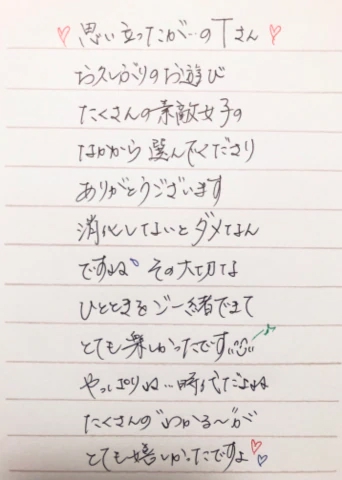 思い立ったが…のTさん
お久しぶりのお遊び
たくさんの素敵女子の
なかから選んでくださり
ありがとうございます
消化してないとダメなん
ですよね その大切な
ひとときをご一緒できて
とても楽しかったです
やっぱりね…時代だよね
たくさんの"わかる〜"が
とても嬉しかったですよ